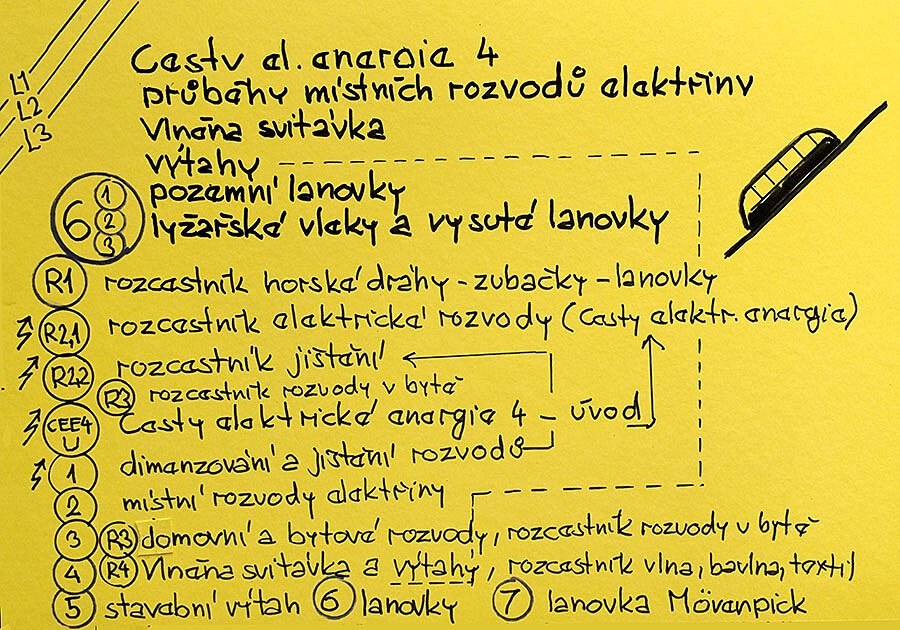 L1
L2
L3
Casty al. anargia 4
průbahy místních rozvodů alaktřiny
Vlnana svitavka
výtahy
pozamní lanovky
6 1 2 3 lyžařská vlaky a vysutá lanovky
R1 rozcastník horská dráhy - zubačky - lanovky
R2,1 rozcastník alaktrická rozvody (Casty alaktr. anargia)
R2,2 rozcastník jištaní
R3 rozcastník rozvody v bytá
CEE4 U Casty alaktrická anargia 4 - úvod
1 dimanzování a jištaní rozvodů
2 místní rozvody alaktřiny
3 R3 domovní a bytová rozvody, rozcastník rozvody v bytá
4 R4 Vlnana svitavka a výtahy, rozcastník vlna, bavlna, taxtil
5 stavabní výtah 6 lanovky 7 lanovka Mövanpick